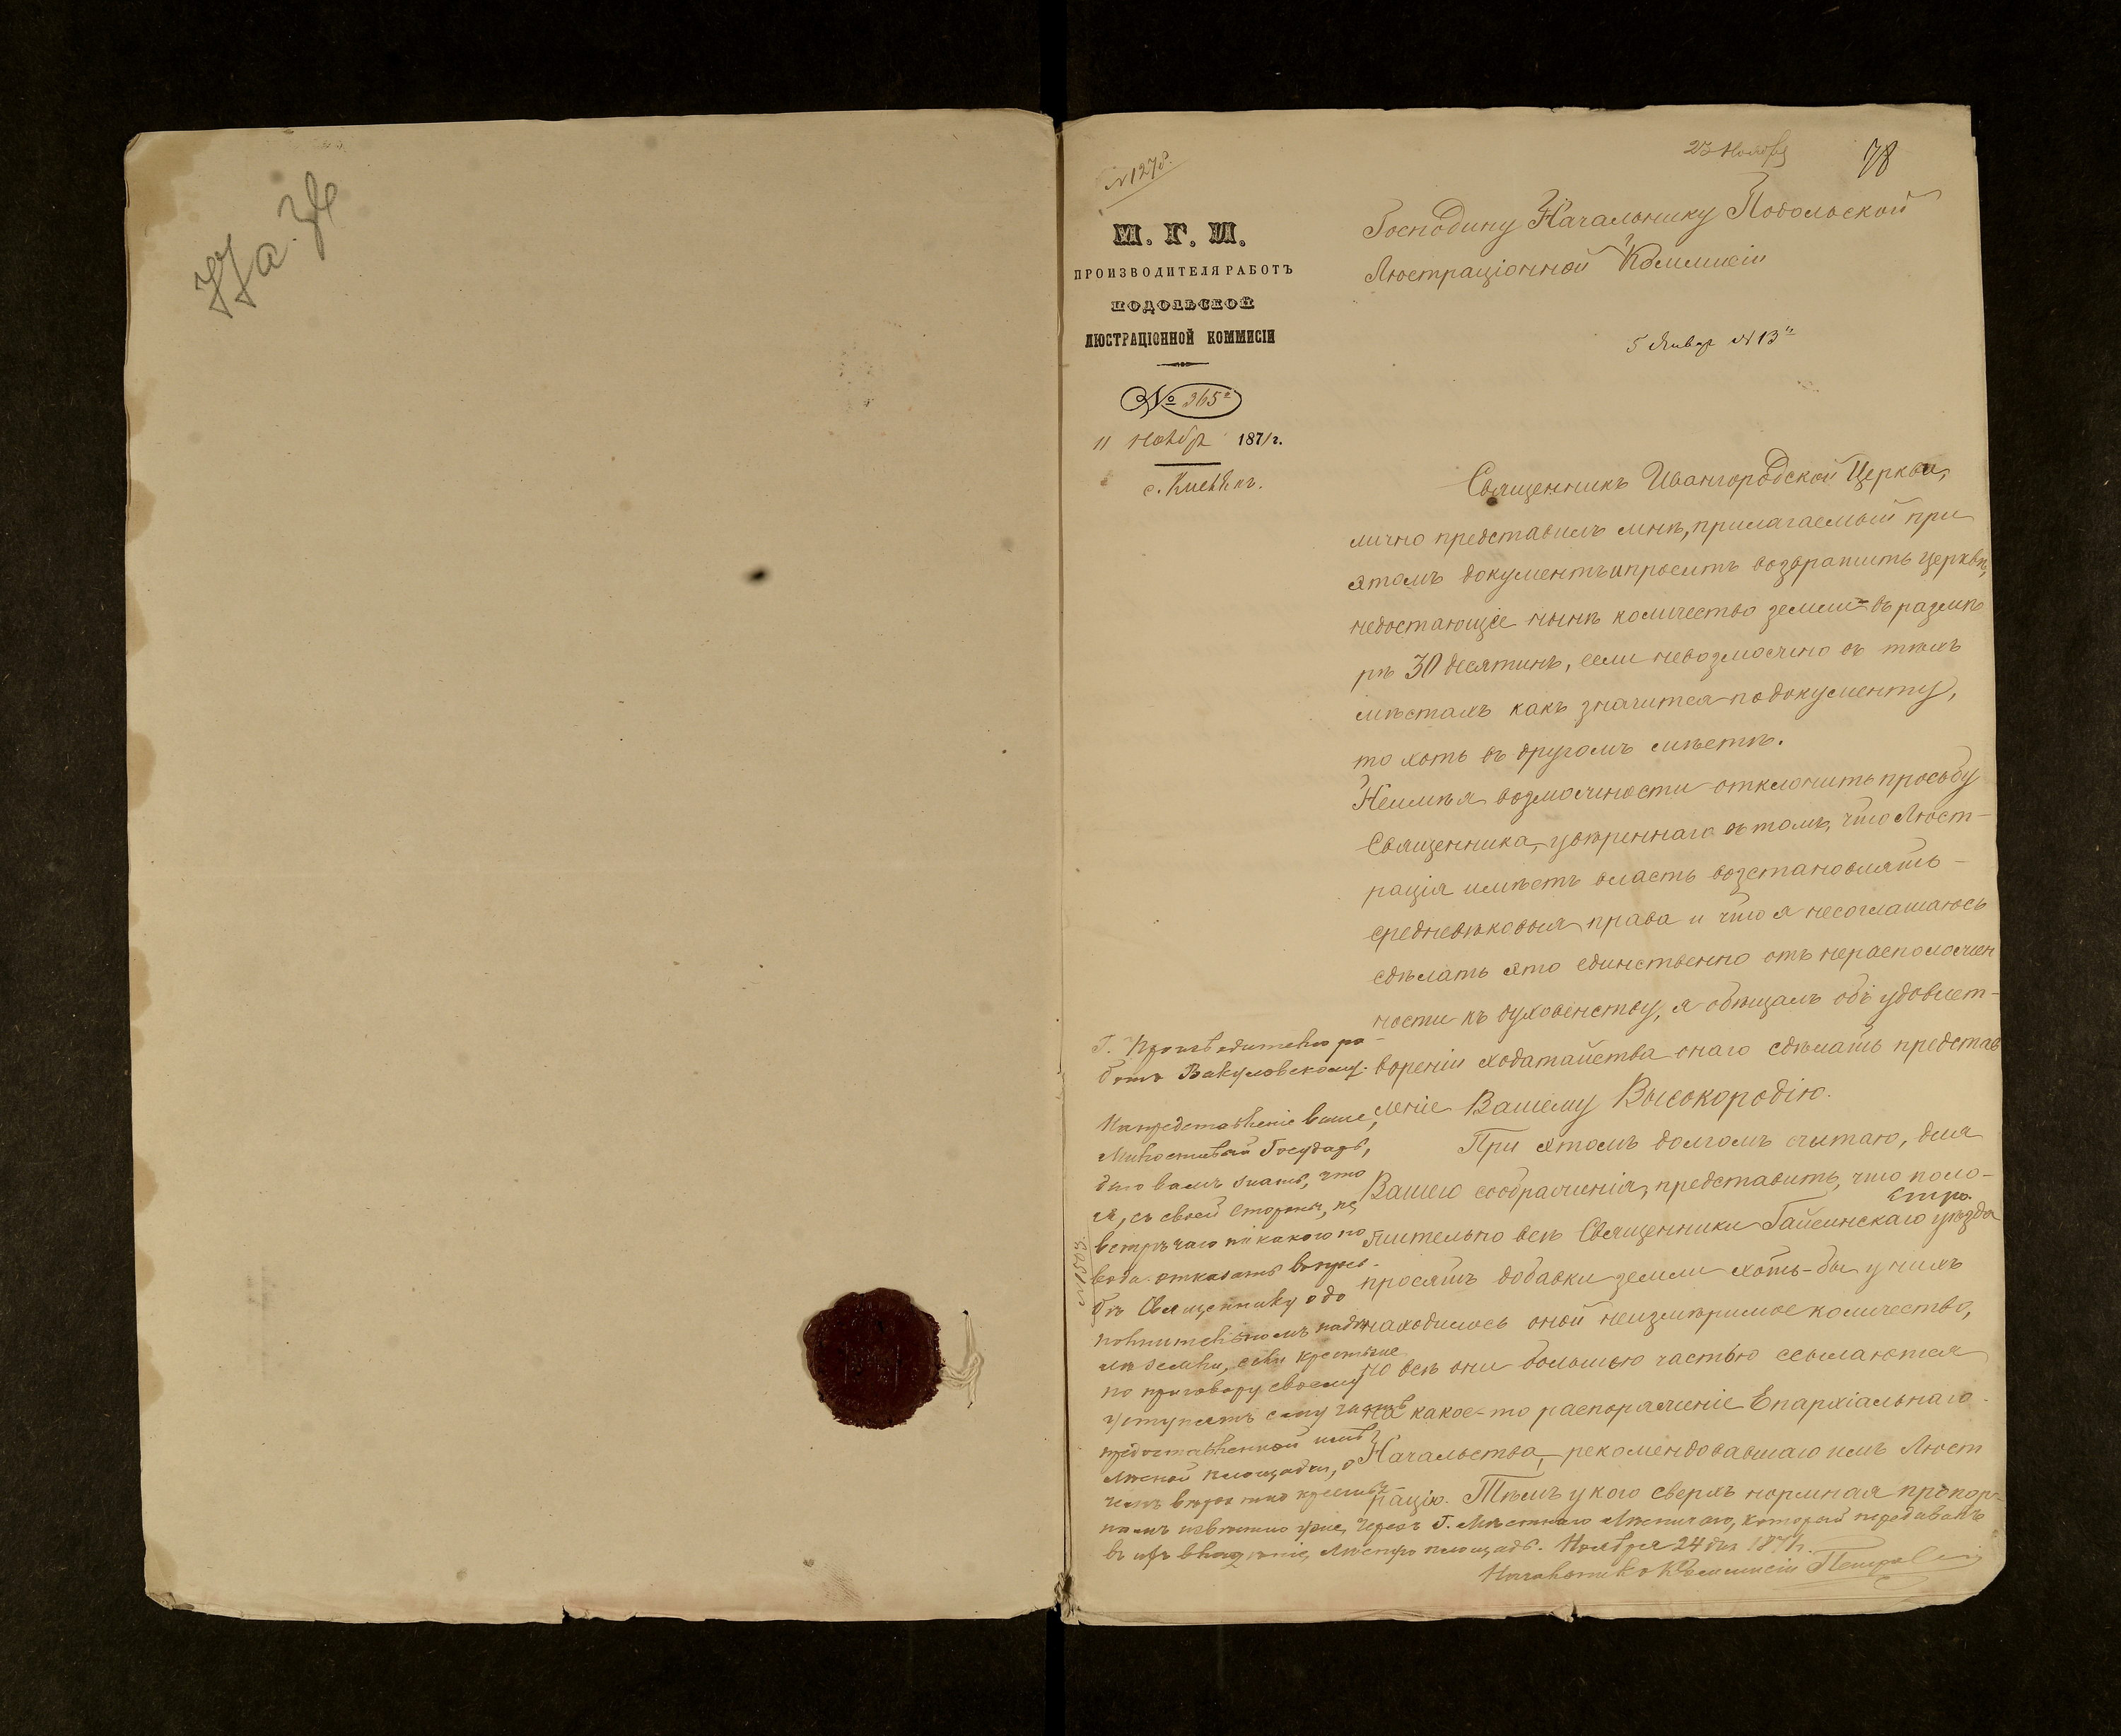 № 1278.
23 Ноября
78
М. Г. И.
ПРОИЗВОДИТЕЛЯ РАБОТЪ
ПОДОЛЬСКОЙ
ЛЮСТРАЦІОННОЙ КОММИСІИ
№ 365
11 Ноября 1871 г.
Господину Начальнику Подольской
Люстраціонной Коммисіи
5 Январ № 13
Священникъ Ивангородской Церкви,
лично представилъ мнѣ, прилагаемый при
этомъ документъ и проситъ возвратить церкви,
недостающее нынѣ количество земли въ размѣ
рѣ 30 десятинъ, если невозможно въ тѣхъ
мѣстахъ какъ значится по документу,
то хоть въ другомъ мѣстѣ.
Неимѣя возможности отклонить просьбу
Священника, увѣреннаго въ томъ, что Люст-
рація имѣетъ власть возстановлять
средневѣковыя права и что я несоглашаюсь
сдѣлать это единственно отъ нерасположен
ности къ духовенству, я обѣщалъ объ удовлет-
вореніи ходатайства онаго сдѣлать представ
леніе Вашему Высокородію.
При этомъ долгомъ считаю, для
Вашего соображенія, представить, что поло-
жительно всѣ Священники Гайсинскаго уѣзда
просятъ добавки земли хоть-бы у нихъ
находилось оной неизмѣримое количество,
но всѣ они большою частью ссылаются
на какое-то распоряженіе Епархіальнаго
Начальства, рекомендовавшаго имъ Люст
рацію. Тѣмъ у кого сверхъ нормная пропор-
Г. Производителю ра-
ботъ Вакуловскому.
На представленіе ваше,
Милостивый Государь,
даю вамъ знать, что
я, съ своей стороны, не
встрѣчаю никакого по
вода отказать въ прось-
бѣ Священнику о до
полнительномъ надѣ
лѣ земли, если крестьяне
по приговору своему
уступятъ ему часть
предоставленной имъ
лѣсной площади, о
чемъ
чрезъ Г. Мѣстнаго Лѣсничаго, который передавалъ
въ ихъ владѣніе площадь. Ноября 24 дня 1871 г.
Начальникъ Коммисіи
№ 1503.